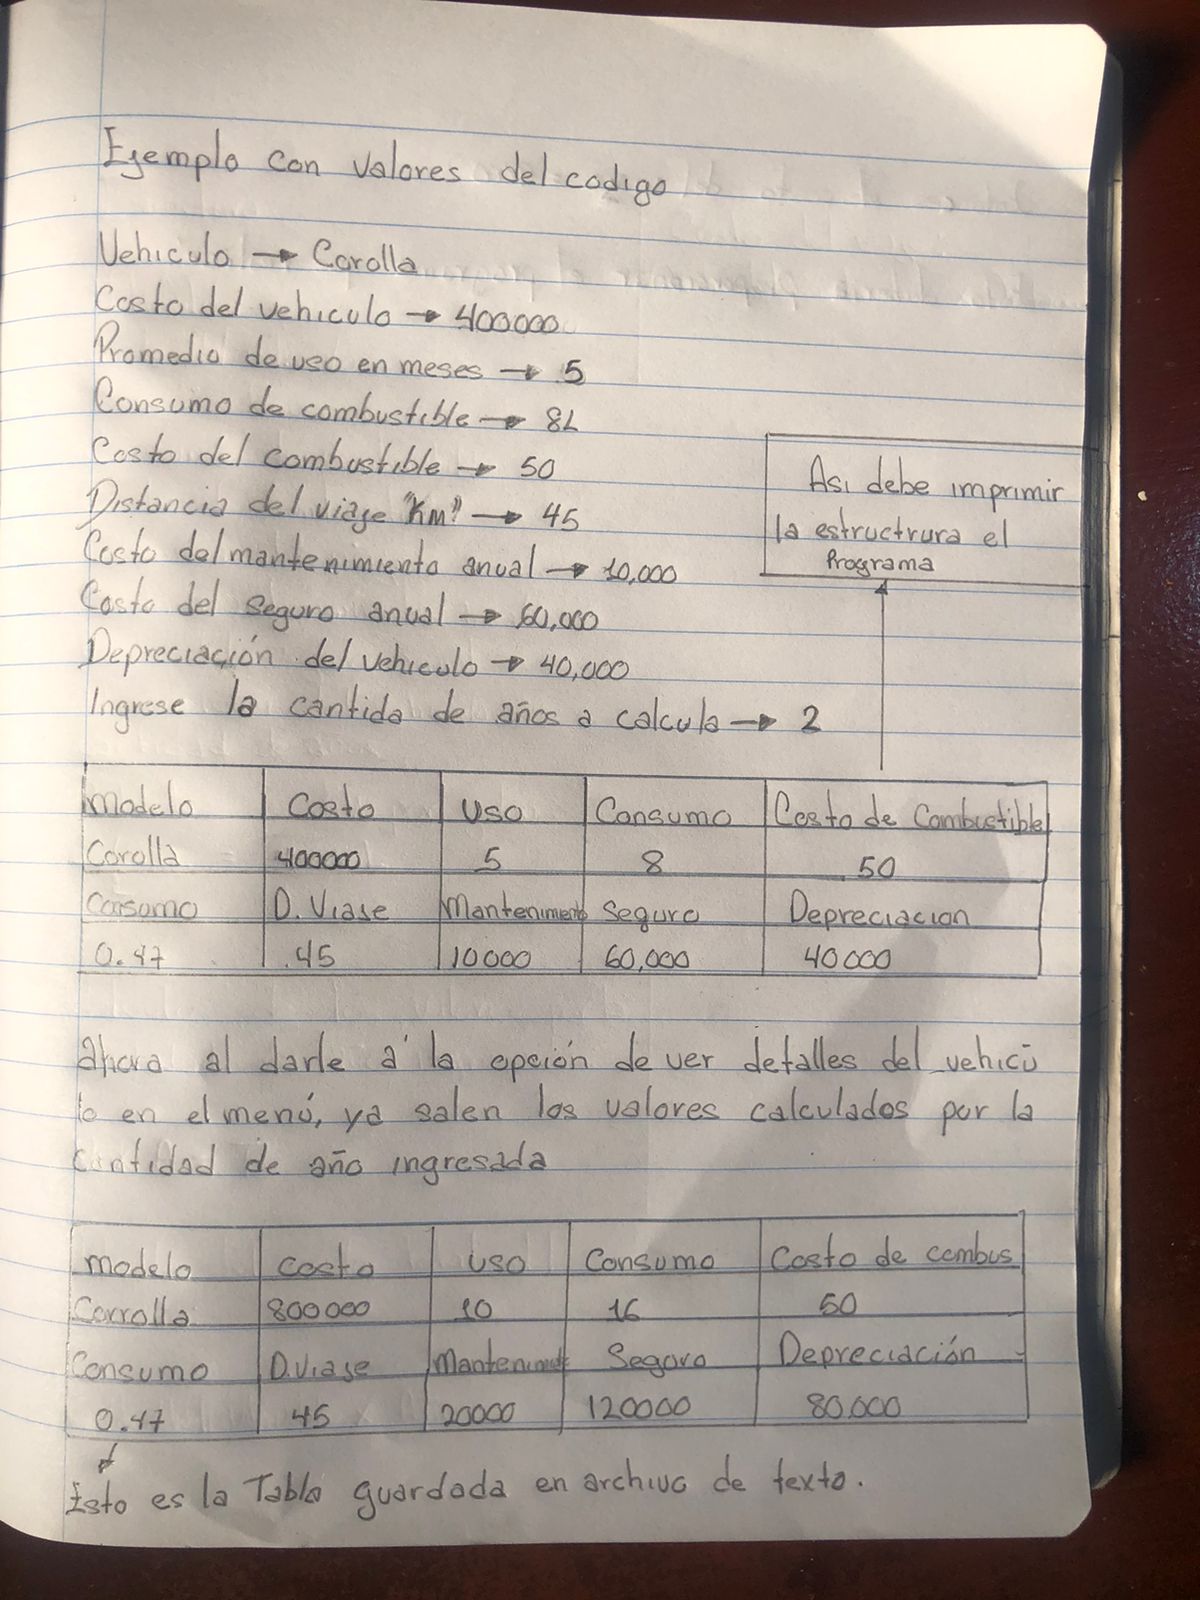 Ejemplo con valores del codigo
Vehiculo → Corolla
Costo del vehiculo → 400000
Promedio de uso en meses → 5
Consumo de combustible → 8L
Costo del combustible → 50
Distancia del viage "KM" → 45
Costo del mantenimiento anual → 10,000
Costo del seguro anual → 60,000
Depreciación del vehiculo → 40,000
Ingrese la cantida de años a calcula → 2
Asi debe imprimir
la estructrura el
Programa
Modelo Costo Uso Consumo Costo de Combustible
Corolla 400000 5 8 50
Consumo D. Viaje Mantenimiento Seguro Depreciacion
0.47 45 10000 60,000 40000
Ahora al darle a la opción de ver detalles del vehicu
lo en el menú, ya salen los valores calculados por la
cantidad de año ingresada
modelo costo uso Consumo Costo de combus
Corrolla 800000 10 16 50
Consumo D.Viaje Seguro Depreciación
0.47 45 20000 120000 80.000
Esto es la Tabla guardada en archivo de texto.